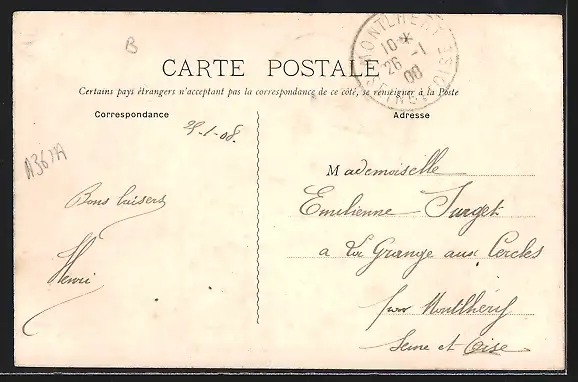 B
MONTLHERY
10 *
26 -1
08
SEINE ET OISE
CARTE POSTALE
Certains pays étrangers n'acceptant pas la correspondance de ce côté, se renseigner à la Poste
Correspondance
Adresse
25-1-08.
A367A
Bons baisers
Henri
Mademoiselle
Emilienne Surget
a La Grange aux Cercles
par Montlhéry
Seine et Oise